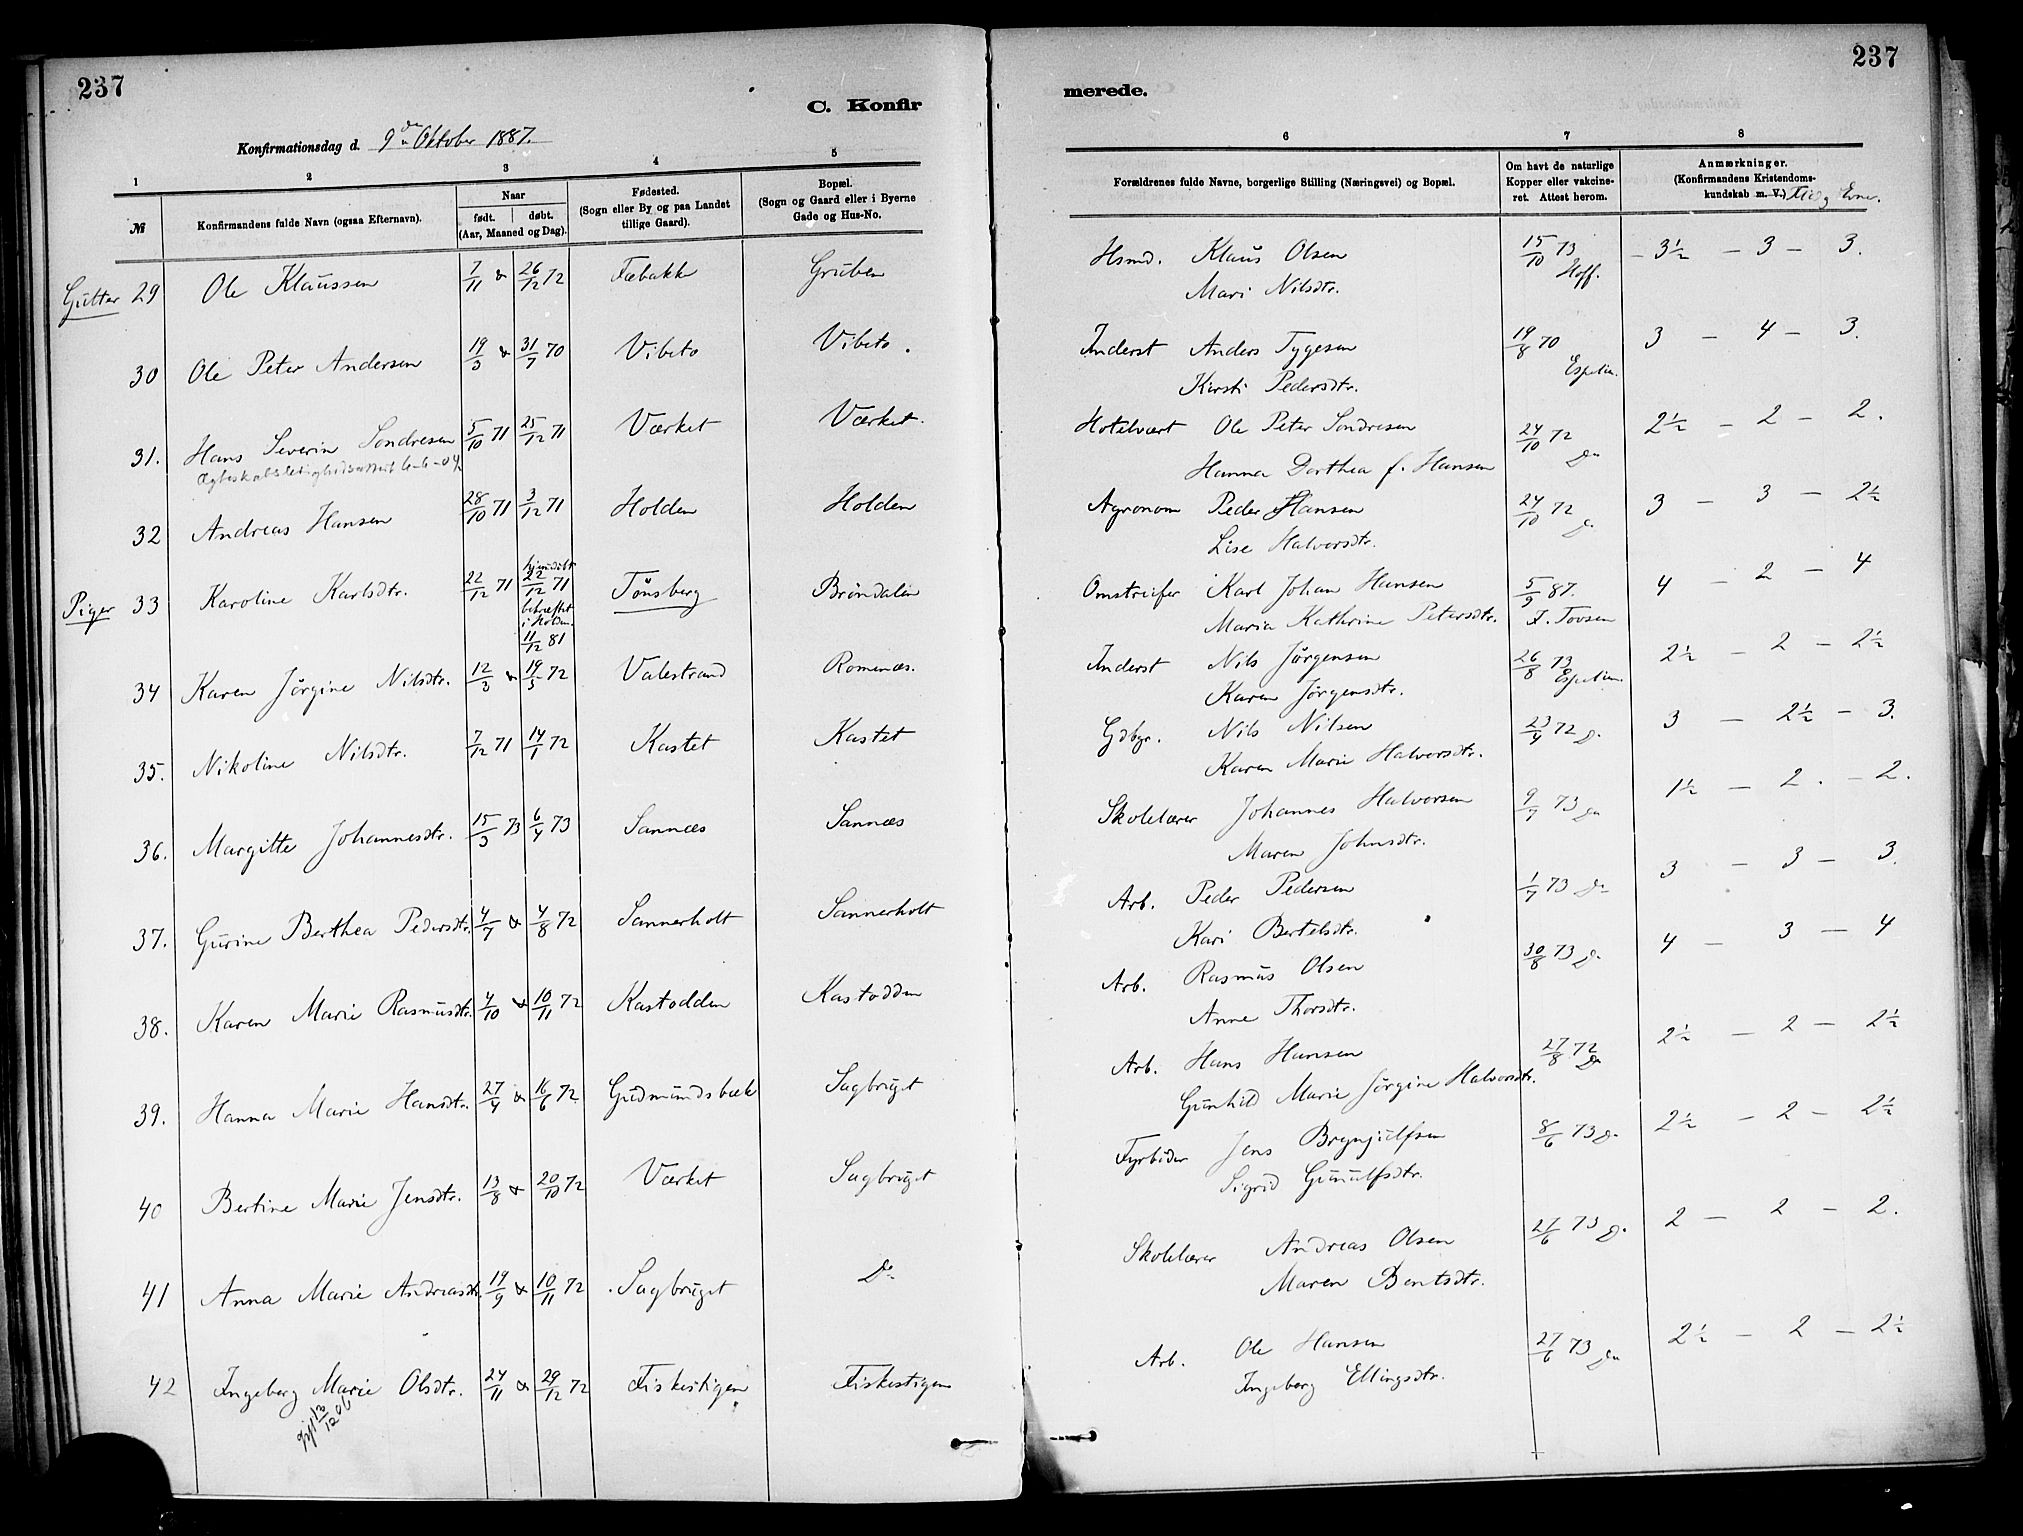 237
237
C. Konfir
merede.
Konfirmationsdag d. 9de Oktober 1887.
1 2 3 4 5 6 7 8
№ Konfirmandens fulde Navn (ogsaa Efternavn). Naar født. døbt. (Aar, Maaned og Dag). Fødested. (Sogn eller By og paa Landet tillige Gaard). Bopæl. (Sogn og Gaard eller i Byerne Gade og Hus-No.
Forældrenes fulde Navne, borgerlige Stilling (Næringsvei) og Bopæl. Om havt de naturlige Kopper eller vakcineret. Attest herom. Anmærkninger. (Konfirmandens Kristendomskundskab m. V.) Flid og Evne.
Gutter 29 Ole Klaussen 7/11 & 26/12 72 Fæbakke Gruben Hsmd. Klaus Olsen 15/10 73 – 3½ – 3 – 3.
Mari Nilsdtr. Hoff.
30 Ole Peter Andersen 19/3 & 31/7 70 Vibeto Vibeto. Inderst Anders Tygesen 19/8 70 3 – 4 – 3.
Kirsti Pedersdtr. Espelin.
31. Hans Severin Sondresen 5/10 71 25/12 71 Værket Værket. Hotelvært Ole Peter Sondresen 24/10 72 Do 2½ – 2 – 2.
Ægteskabsledighedsattest 6-6-04 Hanna Dorthea f. Hansen
32 Andreas Hansen 28/10 71 3/12 71 Holden Holden Agronom Peder Hansen 24/10 72 Do 3 – 3 – 2½
Lise Halvorsdtr.
Piger 33 Karoline Karlsdtr. 22/12 71 hjemdøbt 22/12 71 Tønsberg Brøndalen Omstreifer Karl Johan Hansen 5/9 87. 4 – 2 – 4
bekræftet i Holden 11/12 81 Maria Kathrine Petersdtr. F. Tovsen
34 Karen Jørgine Nilsdtr. 12/3 & 19/5 72 Valestrand Romenæs. Inderst Nils Jørgensen 26/8 73 2½ – 2 – 2½
Karen Jørgensdtr. Espelin.
35. Nikoline Nilsdtr. 7/12 71 14/1 72 Kastet Kastet Gdbgr. Nils Nilsen 23/4 72 Do 3 – 2½ – 3.
Karen Marie Halvorsdtr.
36. Margitte Johannesdtr. 15/3 73 6/4 73 Sannæs Sannæs Skolelærer Johannes Halvorsen 9/7 73 Do 1½ – 2. – 2.
Maren Johnsdtr.
37. Gurine Berthea Pedersdtr. 4/7 & 4/8 72 Sannerholt Sannerholt Arb. Peder Pedersen 1/7 73 Do 3 – 3 – 3.
Kari Bertelsdtr.
38. Karen Marie Rasmusdtr. 4/10 & 10/11 72 Kastodden Kastodden Arb. Rasmus Olsen 30/8 73 Do 4 – 3 – 4
Anne Thorsdtr.
39. Hanna Marie Hansdtr. 27/4 & 16/6 72 Gudmundsbæk Sagbruget Arb. Hans Hansen 27/8 72 Do 2½ – 2 – 2½
Gunhild Marie Jørgine Halvorsdtr.
40 Bertine Marie Jensdtr. 13/8 & 20/10 72 Værket Sagbruget Fyrbøder Jens Brynjulfsen 8/6 73 Do 2½ – 2 – 2½
Sigrid Gunulfsdtr.
41 Anna Marie Andreasdtr. 19/9 & 10/11 72 Sagbruget Do Skolelærer Andreas Olsen 21/6 73 Do 2 – 2 – 2.
Maren Bentsdtr.
42 Ingeborg Marie Olsdtr. 24/11 & 29/12 72 Fiskestigen Fiskestigen Arb. Ole Hansen 27/6 73 Do 2½ – 2 – 2½
Ingeborg Ellingsdtr.